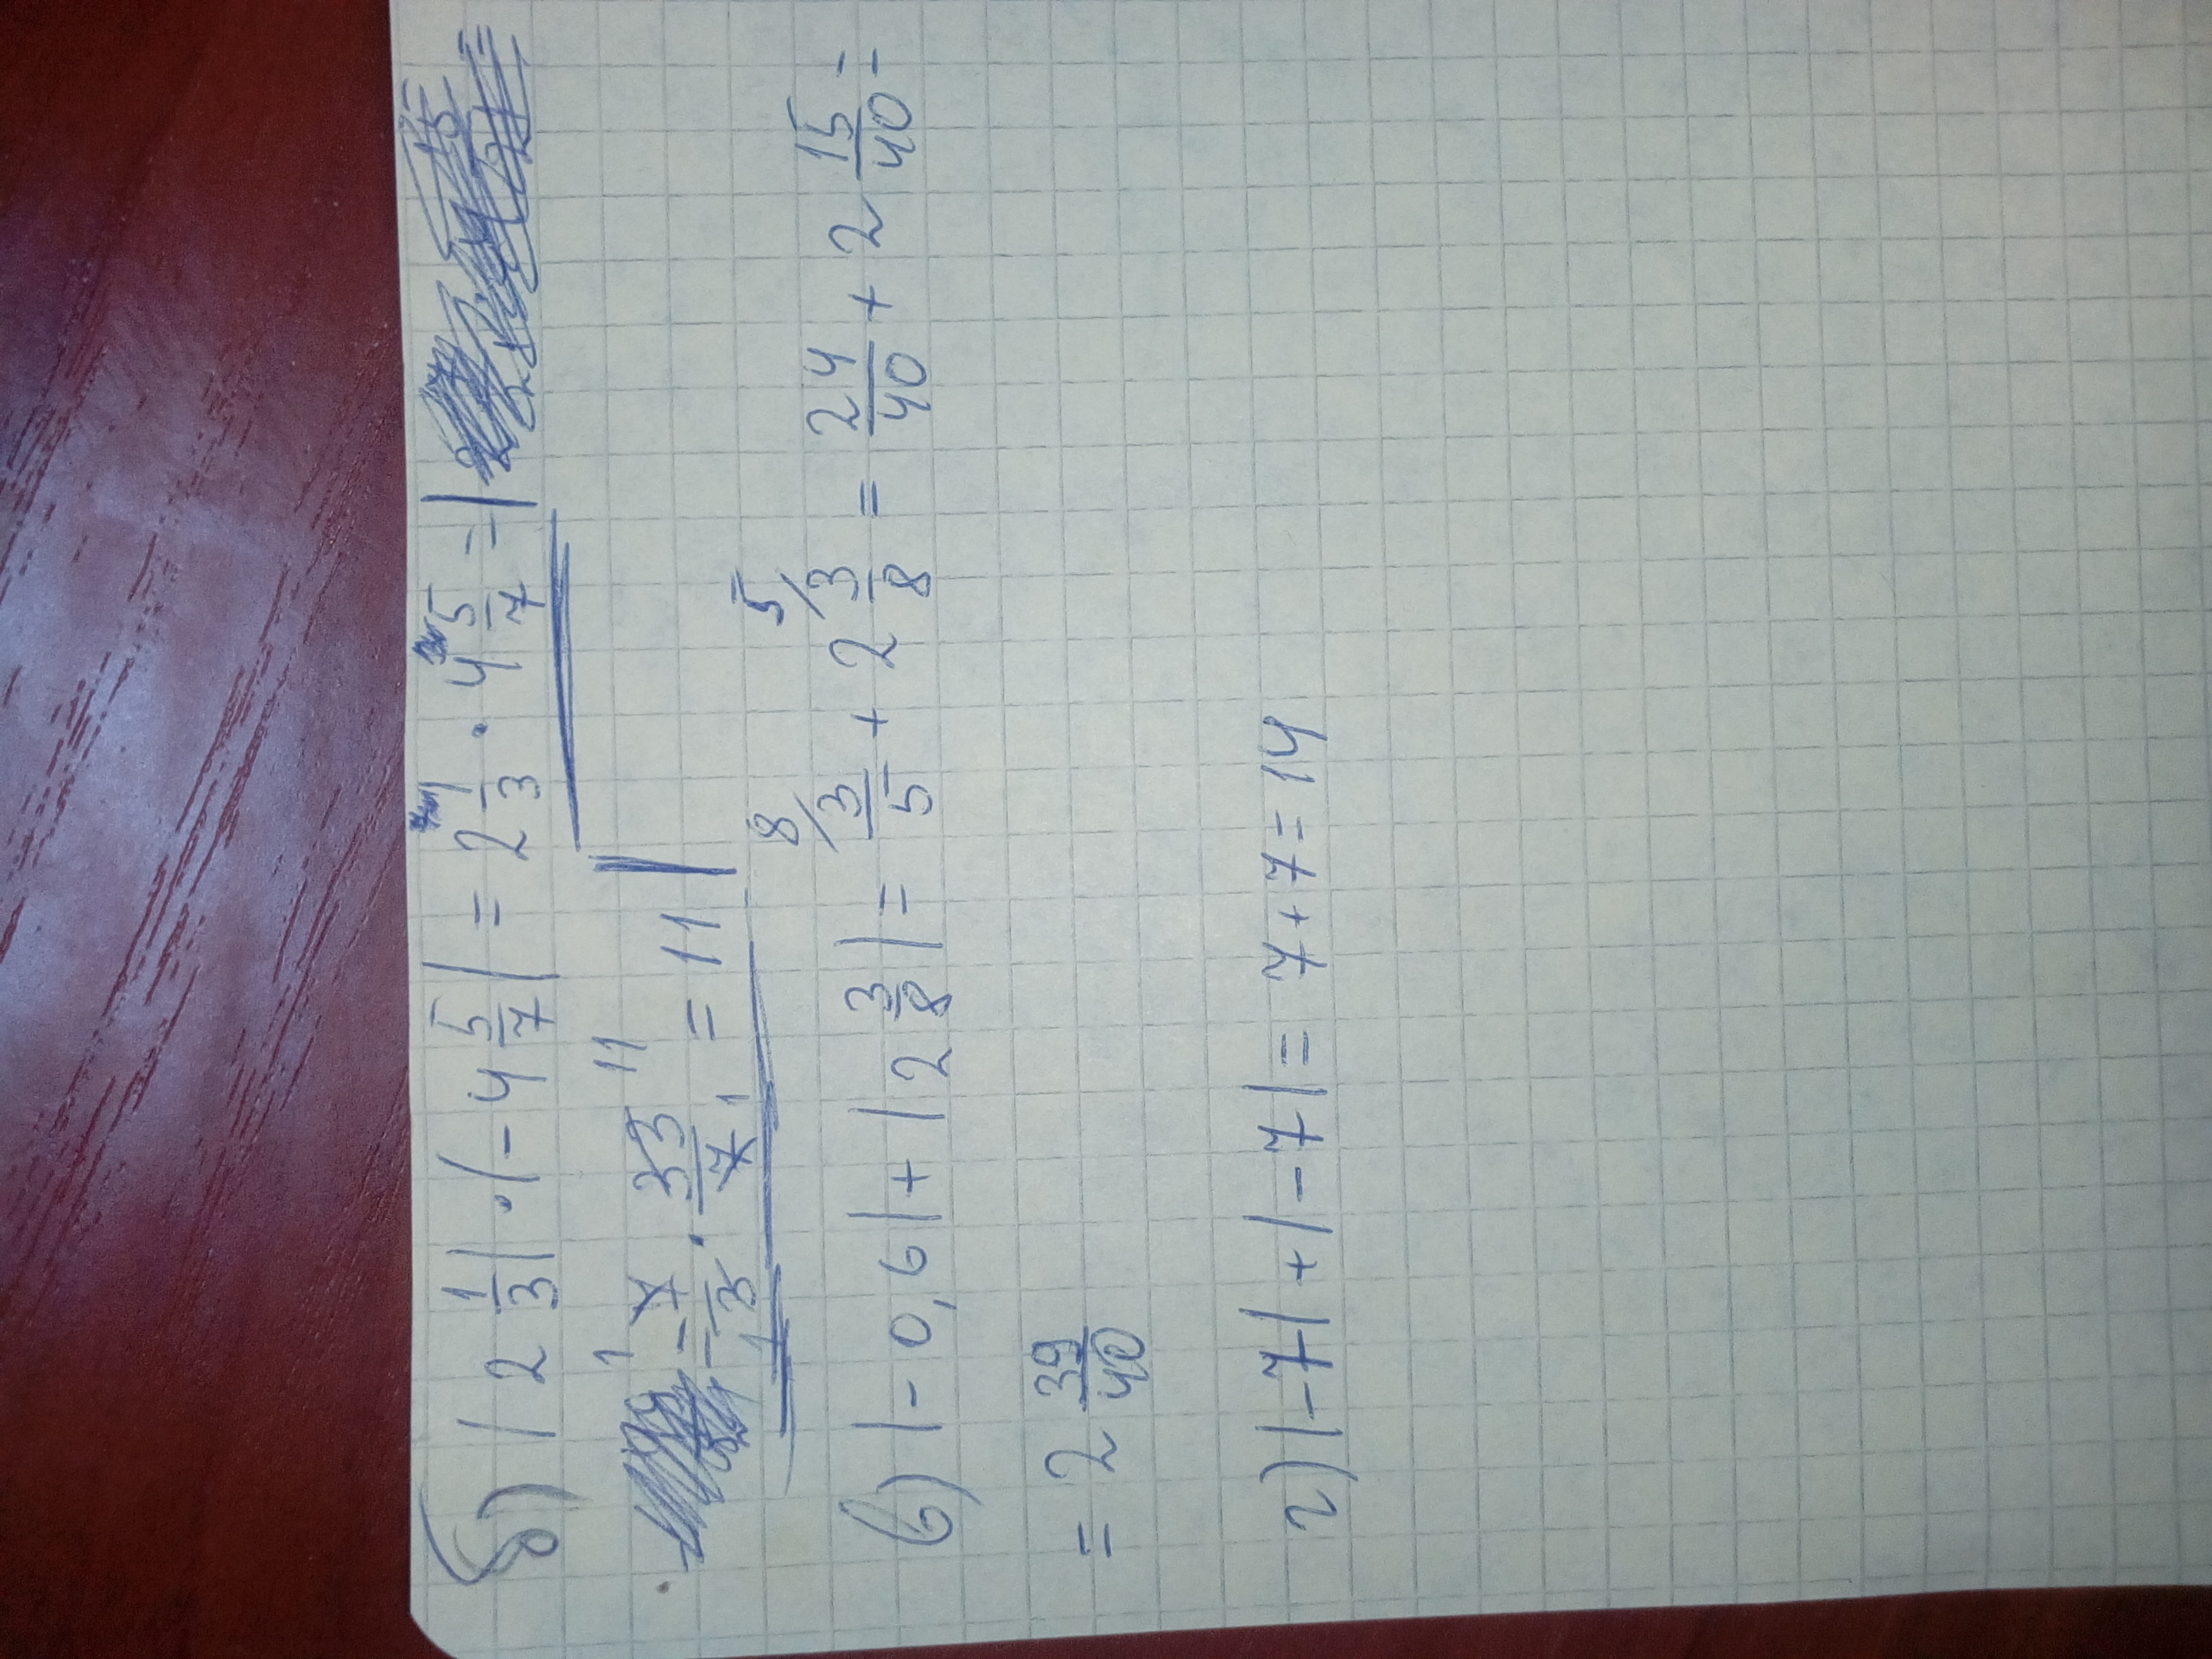 б) |2 1/3| · |-4 5/7| = 2 1/3 · 4 5/7 =
= 7/3 · 33/7 = 11
в) |-0,6| + |2 3/8| = 3/5 + 2 3/8 = 24/40 + 2 15/40 =
= 2 39/40
г) |-7| + |-7| = 7 + 7 = 14